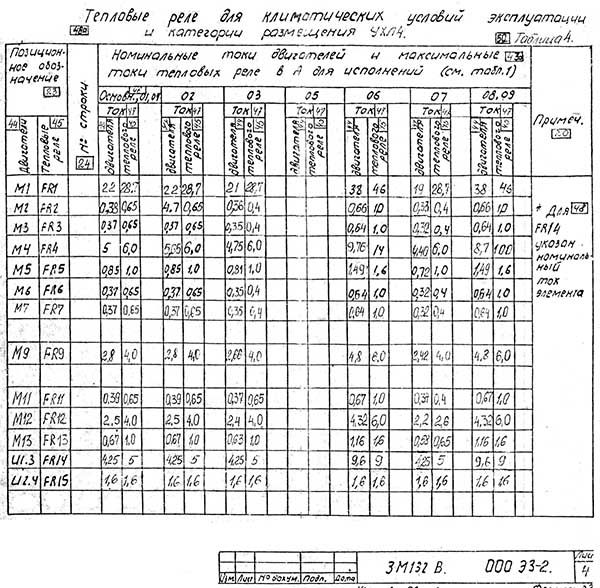 Тепловые реле для климатических условий эксплуатации
и категории размещения УХЛ4. Таблица 4.
Позицион- ное обоз- начение
№ строки
Номинальные токи двигателей и максимальные
токи тепловых реле в А для исполнений (см. табл.1)
Примеч.
Основн., 01, 04 02 03 05 06 07 08,09
Ток 47 Ток 47 Ток 47 Ток 47 Ток 47 Ток 47 Ток 47
44 45
Двигатели Тепловые реле 24 двигателя теплового реле двигателя теплового реле двигателя теплового реле двигателя теплового реле двигателя теплового реле двигателя теплового реле двигателя теплового реле
М1 FR1 22 28,7 22 28,7 21 28,7 38 46 19 28,7 38 46
М2 FR2 0,38 0,65 4,7 0,65 0,36 0,4 0,66 1,0 0,33 0,4 0,66 1,0
М3 FR3 0,37 0,65 0,37 0,65 0,35 0,4 0,64 1,0 0,32 0,4 0,64 1,0
М4 FR4 5 6,0 6,0 4,75 6,0 9,76 14 4,40 6,0 8,7 10,0
М5 FR5 0,85 1,0 0,85 1,0 0,81 1,0 1,49 1,6 0,72 1,0 1,49 1,6
М6 FR6 0,37 0,65 0,37 0,65 0,35 0,4 0,64 1,0 0,32 0,4 0,64 1,0
М7 FR7 0,37 0,65 0,37 0,65 0,35 0,4 0,64 1,0 0,32 0,4 0,64 1,0
М9 FR9 2,8 4,0 2,8 4,0 2,66 4,0 4,8 6,0 2,42 4,0 4,8 6,0
М11 FR11 0,39 0,65 0,39 0,65 0,37 0,65 0,67 1,0 0,34 0,4 0,67 1,0
М12 FR12 2,5 4,0 2,5 4,0 2,4 4,0 4,32 6,0 2,2 2,6 4,32 6,0
М13 FR13 0,67 1,0 0,67 1,0 0,63 1,0 1,16 1,6 0,65 1,16 1,6
U1.3 FR14 4,25 5 4,25 5 4,25 5 9,6 9 4,25 5 9,6 9
U2.4 FR15 1,6 1,6 1,6 1,6 1,6 1,6 1,6 1,6 1,6 1,6 1,6 1,6
* Для 48
FR14
указан
номиналь-
ный
ток
элемента
3М132 В. 000 Э3-2.
Лист
4
Изм Лист № докум. Подп. Дата